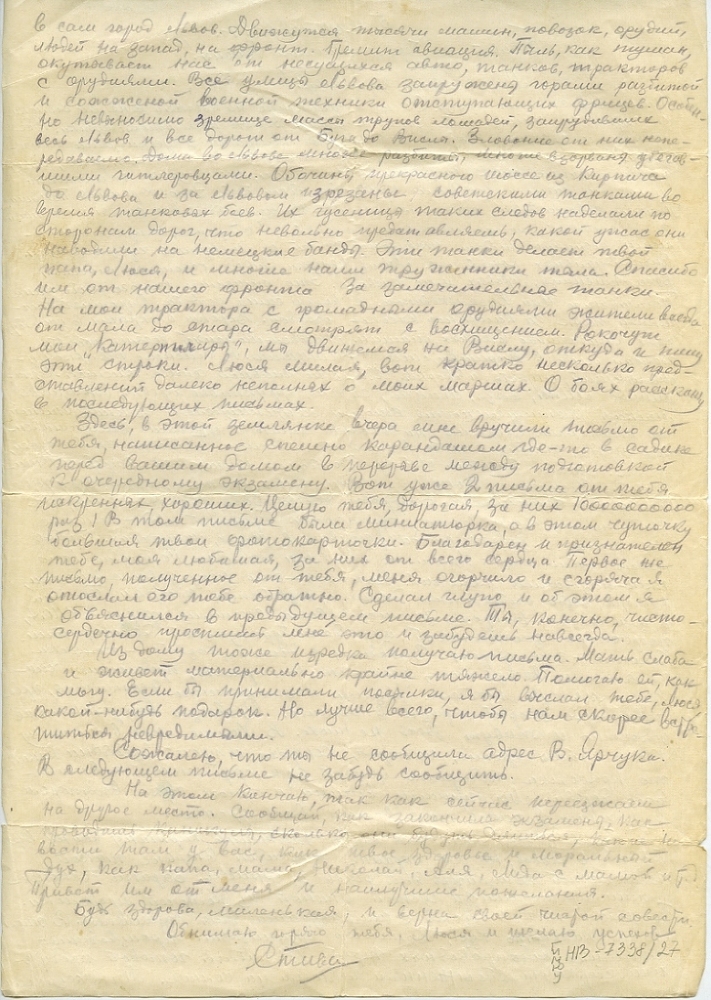 в сам город Львов. Движутся тысячи машин, повозок, орудий,
людей на запад, на фронт. Гремит авиация. Пыль, как туман,
окутывает нас от несущихся авто, танков, тракторов
с орудиями. Все улицы Львова запружены горами разбитой
и сожженой военной техники отступающих фрицев. Особен-
но невыносимо зрелище массы трупов лошадей, запрудивших
весь Львов и все дороги от Буга до Вислы. Зловоние от них непе-
редаваемо. Дома во Львове многие разбиты, многие взорваны убегав-
шими гитлеровцами. Обочины прекрасного шоссе из кирпича
до Львова и за Львовом изрезаны советскими танками во
время танковых боев. Их гусеницы таких следов наделали по
сторонам дорог, что невольно представляешь, какой ужас они
наводили на немецкие банды. Эти танки делает твой
папа, Люся, и многие наши труженники тыла. Спасибо
им от нашего фронта за замечательные танки.
На мои трактора с громадными орудиями жители
от мала до стара смотрят с восхищением. Рокочут
мои „Катерпиллары", мы движемся на Вислу, откуда и пишу
эти строки. Люся милая, вот кратко несколько пред-
ставлений далеко неполных о моих маршах. О боях расскажу
в последующих письмах.
Здесь, в этой землянке вчера мне вручили письмо от
тебя, написанное спешно карандашом где-то в садике
перед вашим домом в перерыве между подготовкой
к очередному экзамену. Вот уже 2 письма от тебя
искренних, хороших. Целую тебя, дорогая, за них 10000000000
раз! В том письме была миниатюрка, а в этом чуточку
большая твои фотокарточки. Благодарен и признателен
тебе, моя любимая, за них от всего сердца. Первое же
письмо, полученное от тебя, меня огорчило и сгоряча я
отослал его тебе обратно. Сделал глупо и об этом я
объяснился в предыдущем письме. Ты, конечно, чисто-
сердечно простишь мне это и забудешь навсегда.
Из дому тоже изредка получаю письма. Мать слаба
и живет материально крайне тяжело. Помогаю ей, как
могу. Если бы принимали посылки, я бы выслал тебе, Люся
какой-нибудь подарок. Но лучше всего, чтобы нам скорее встре-
титься невредимыми.
Сожалею, что ты не сообщила адрес В. Ярчука.
В следующем письме не забудь сообщить.
На этом кончаю, так как сейчас переезжаем
на другое место. Сообщай, как закончила экзамены, как
сколько они
там у Вас, как твое здоровье и моральный
дух, как папа, мама, Николай, Аля, с мамой и т.д.
Привет им от меня и наилучшие пожелания.
Будь здорова, миленькая, и верна своей чистой совести.
Обнимаю горячо тебя, Люся и желаю успехов
НВ-7338/27